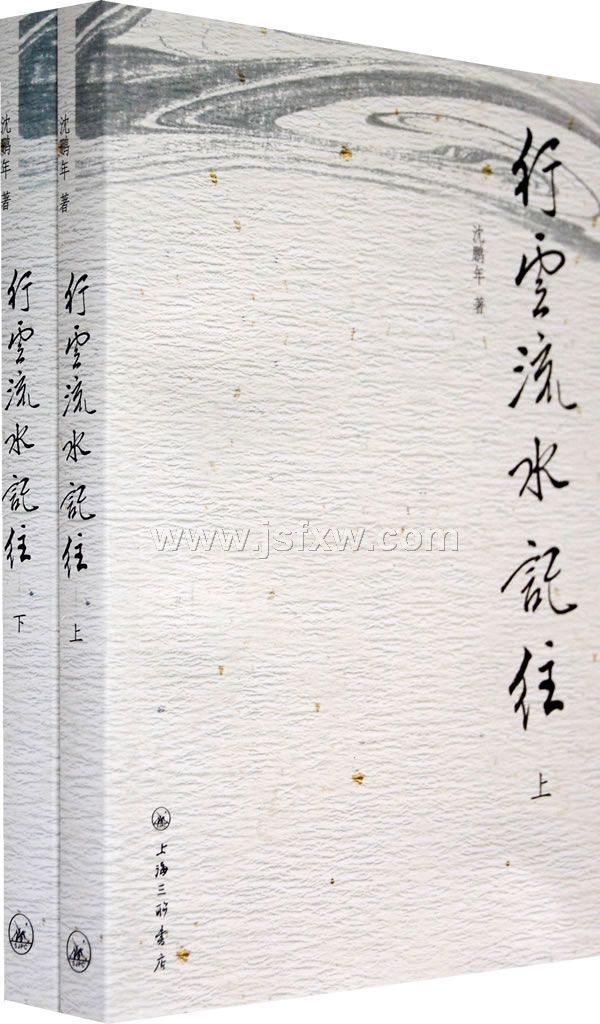 行雲流水記往
上
沈鹏年 著
上海三联书店
沈鹏年 著
行雲流水記往
上
SJPC
沈鹏年 著
行雲流水記往
下
SJPC
www.jsfxw.com